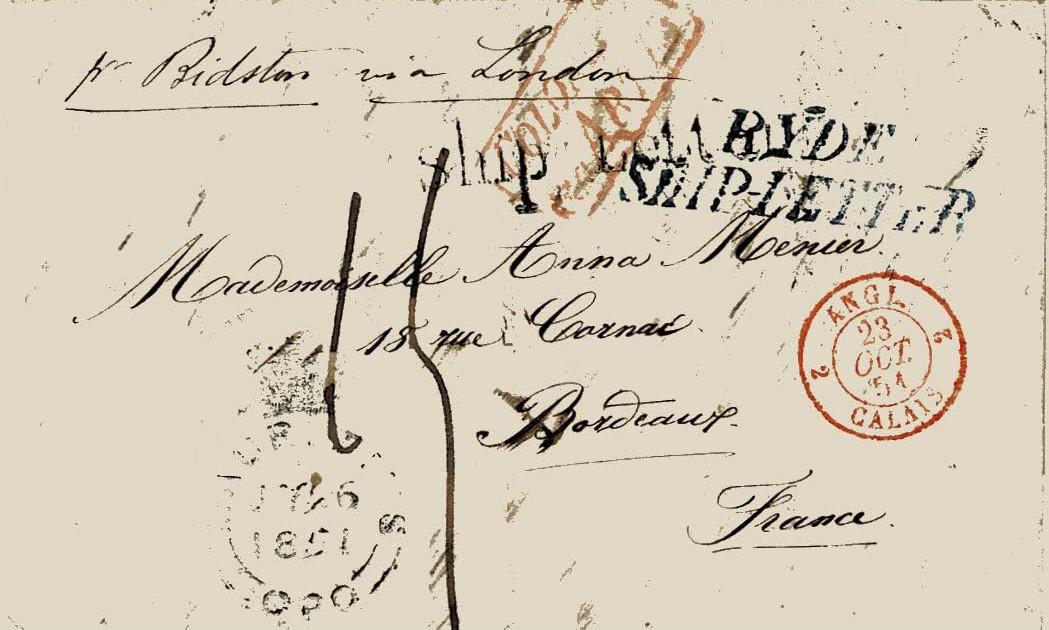 pr Bidston via London
Ship Lett
RYDE
SHIP-LETTER
COLO
ART
Mademoiselle Anna Menier.
18 rue Cornac.
Bordeaux.
France.
2 ANGL. 2
23
OCT.
51
CALAIS
6
1851
GPO